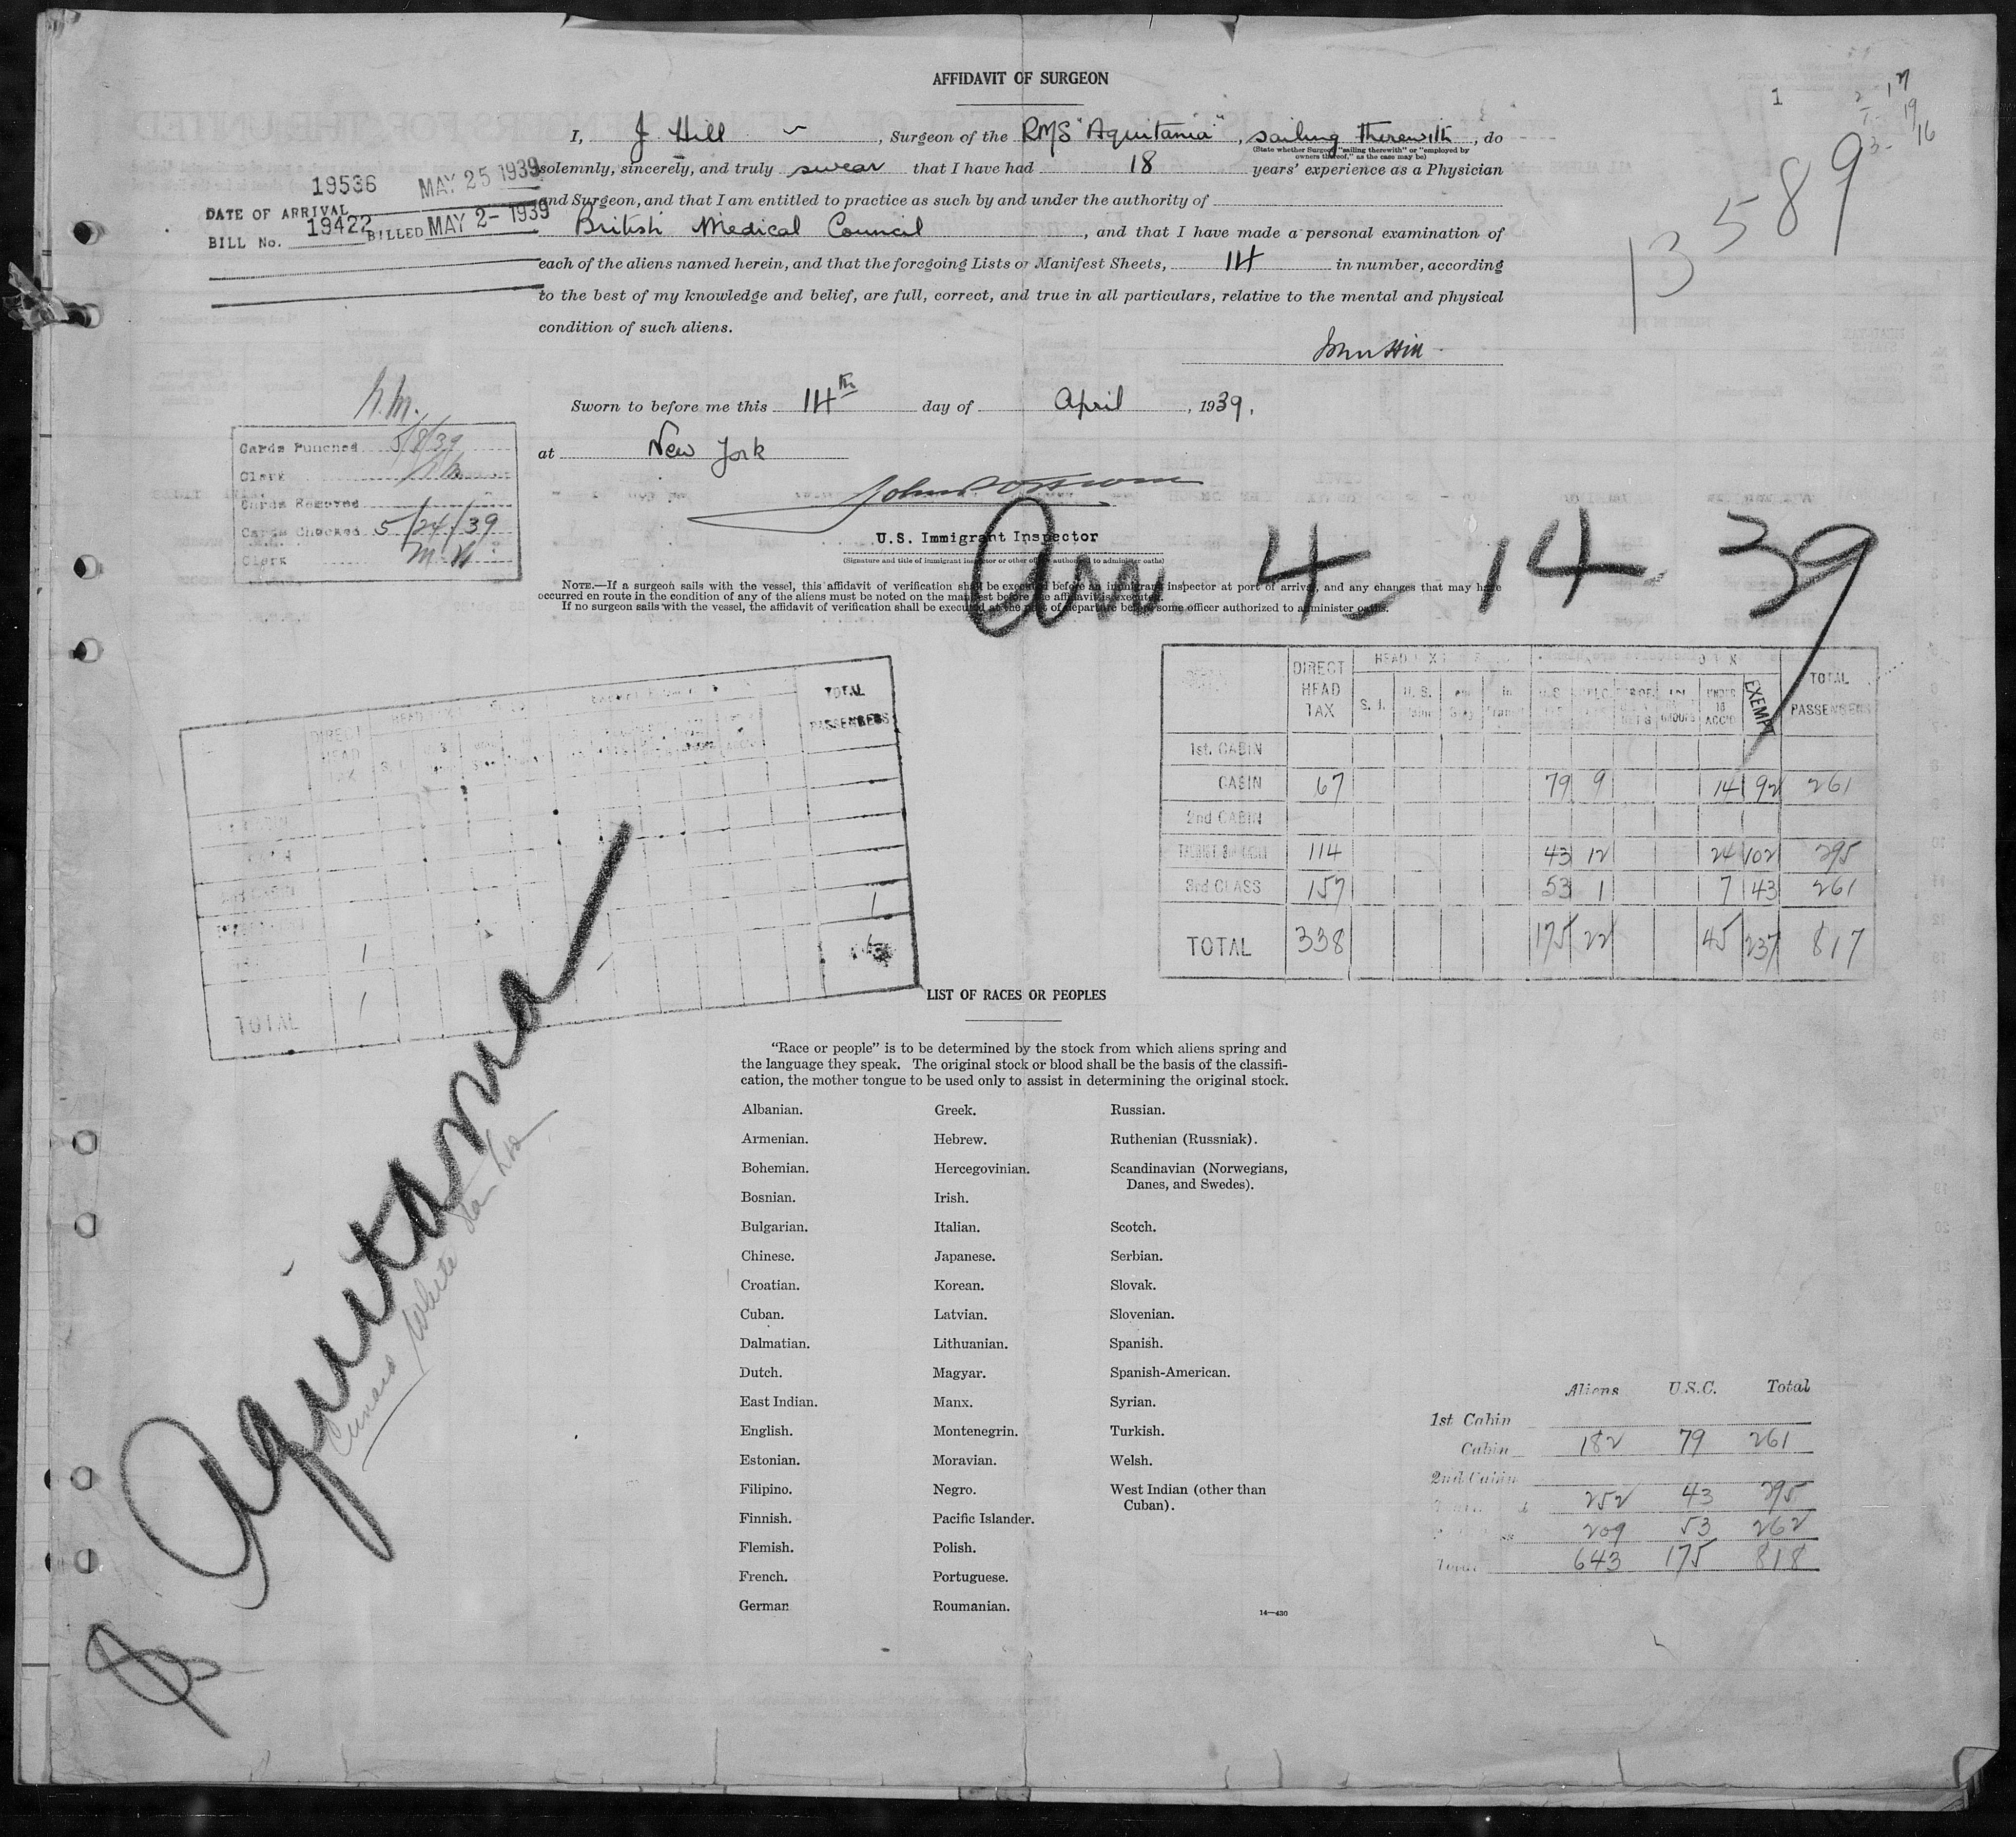 AFFIDAVIT OF SURGEON
1
I, J Hill, Surgeon of the RMS "Aquitania", sailing therewith, do
(State whether Surgeon "sailing therewith" or "employed by
owners thereof," as the case may be)
solemnly, sincerely, and truly swear that I have had 18 years' experience as a Physician
and Surgeon, and that I am entitled to practice as such by and under the authority of
British Medical Council, and that I have made a personal examination of
each of the aliens named herein, and that the foregoing Lists or Manifest Sheets, 14 in number, according
to the best of my knowledge and belief, are full, correct, and true in all particulars, relative to the mental and physical
condition of such aliens.
John Hill
19536 MAY 25 1939
DATE OF ARRIVAL
BILL No. 19422 BILLED MAY 2- 1939
13589
17
19
16
Sworn to before me this 14th day of April, 1939.
at New York
U.S. Immigrant Inspector
(Signature and title of immigrant inspector or other officer authorized to administer oaths)
h.m.
Cards Punched 5/8/39
Clerk h.m.
Cards Removed
Cards Checked 5/24/39
Clerk
Am 4-14-39
NOTE.—If a surgeon sails with the vessel, this affidavit of verification shall be executed before an immigrant inspector at port of arrival, and any changes that may have
occurred en route in the condition of any of the aliens must be noted on the manifest before the affidavit is executed.
If no surgeon sails with the vessel, the affidavit of verification shall be executed at the port of departure before some officer authorized to administer oaths.
TOTAL
PASSENGERS
DIRECT
HEAD
TAX
1
1
1
TOTAL 1
DIRECT HEAD TAX
S. I.
U. S.
UNDER 16 ACC'D
EXEMPT
TOTAL PASSENGERS
1st. CABIN
CABIN 67 79 9 14 92 261
2nd CABIN
TOURIST 3rd CABIN 114 43 12 24 102 295
3rd CLASS 157 53 1 7 43 261
TOTAL 338 175 22 45 237 817
Aquitania
Cunard White Star Line
LIST OF RACES OR PEOPLES
"Race or people" is to be determined by the stock from which aliens spring and
the language they speak. The original stock or blood shall be the basis of the classifi-
cation, the mother tongue to be used only to assist in determining the original stock.
Albanian. Greek. Russian.
Armenian. Hebrew. Ruthenian (Russniak).
Bohemian. Hercegovinian. Scandinavian (Norwegians,
Danes, and Swedes).
Bosnian. Irish.
Bulgarian. Italian. Scotch.
Chinese. Japanese. Serbian.
Croatian. Korean. Slovak.
Cuban. Latvian. Slovenian.
Dalmatian. Lithuanian. Spanish.
Dutch. Magyar. Spanish-American.
East Indian. Manx. Syrian.
English. Montenegrin. Turkish.
Estonian. Moravian. Welsh.
Filipino. Negro. West Indian (other than
Cuban).
Finnish. Pacific Islander.
Flemish. Polish.
French. Portuguese.
German Roumanian.
14—430
Aliens U.S.C. Total
1st Cabin
Cabin 182 79 261
2nd Cabin
252 43 295
209 53 262
Total 643 175 818